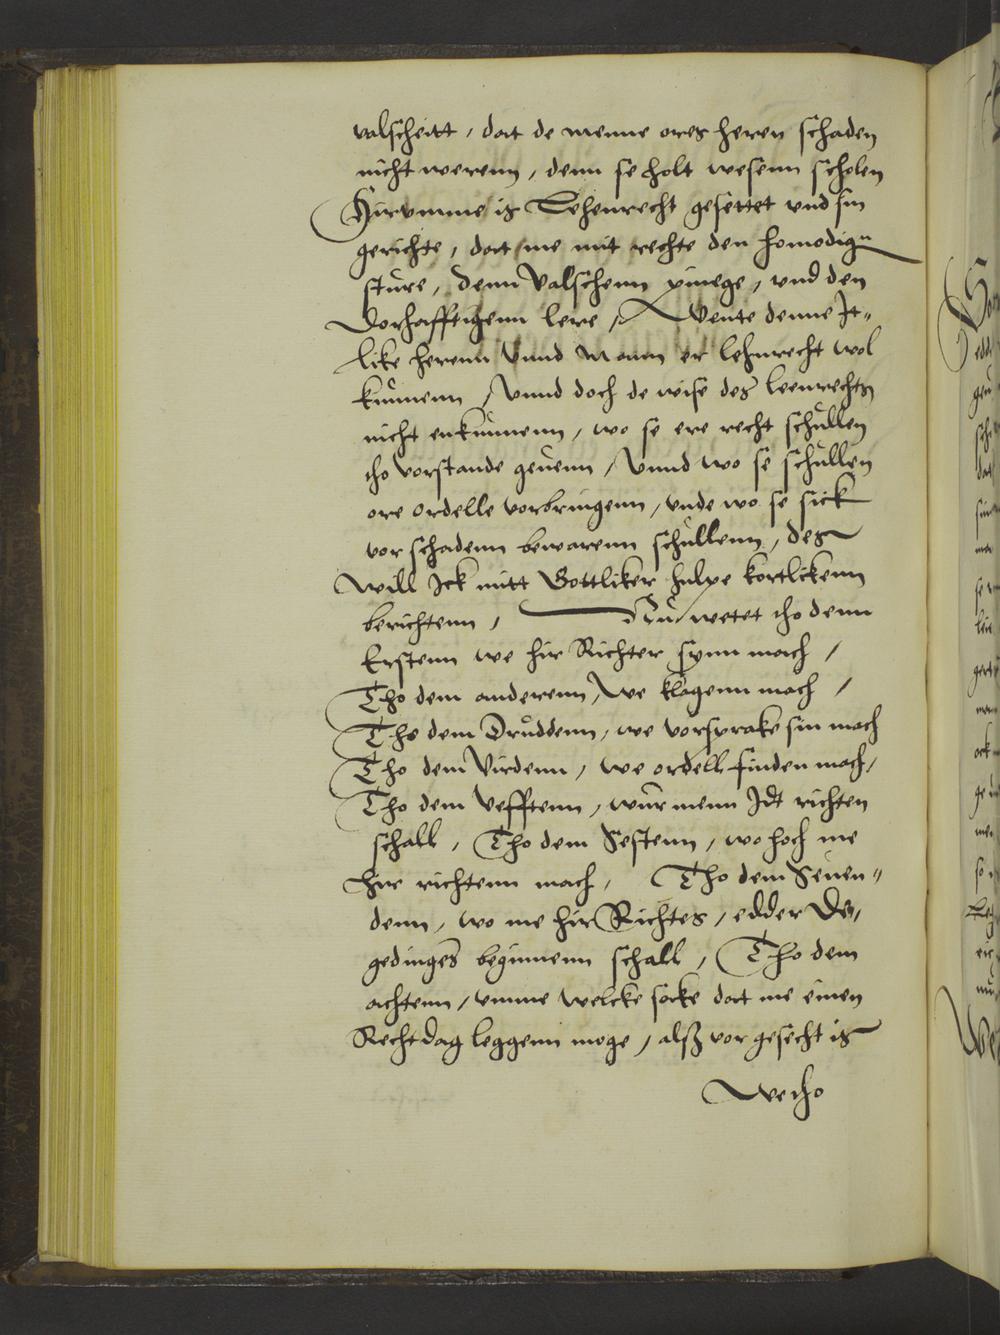 valscheitt, dat de menne ores heren schaden
nicht werenn, denn se holt wesenn scholen
Hirumme is Lehenrecht gesettet vnd sin
gerichte, dat me mit rechte den homodign
sture, denn Valschenn pinege, vnd den
Dorhafftigenn lere, Wente denne It-
like herenn Vnnd Mannen er lehnrecht wol
kunnenn, Vnnd doch de wise des leenrechts
nicht enkunnenn, wo se ere recht schullen
tho vorstande geuenn, Vnnd wo se schullen
ore ordelle vorbringenn, vnde wo se sick
vor schadenn bewarenn schullenn, des
Will Ick mitt Gottliker hulpe kortlikenn
berichtenn, Nu wetet tho denn
Erstenn we hir Richter synn mach,
Tho dem anderenn, We klagenn mach,
Tho dem Druddenn, we vorsprake sin mach
Tho dem Virdenn, we ordell finden mach,
Tho dem Vefftenn, wur menn Idt richten
schall, Tho dem Sestenn, wo hoch me
hir richtenn mach, Tho dem Seuen-
denn, wo me hir Richtes, edder De,
gedinges beginnenn schall, Tho dem
achtenn, vmme welcke sake dat me einen
Recht dag leggenn moge, alsz vor gesecht is
We tho